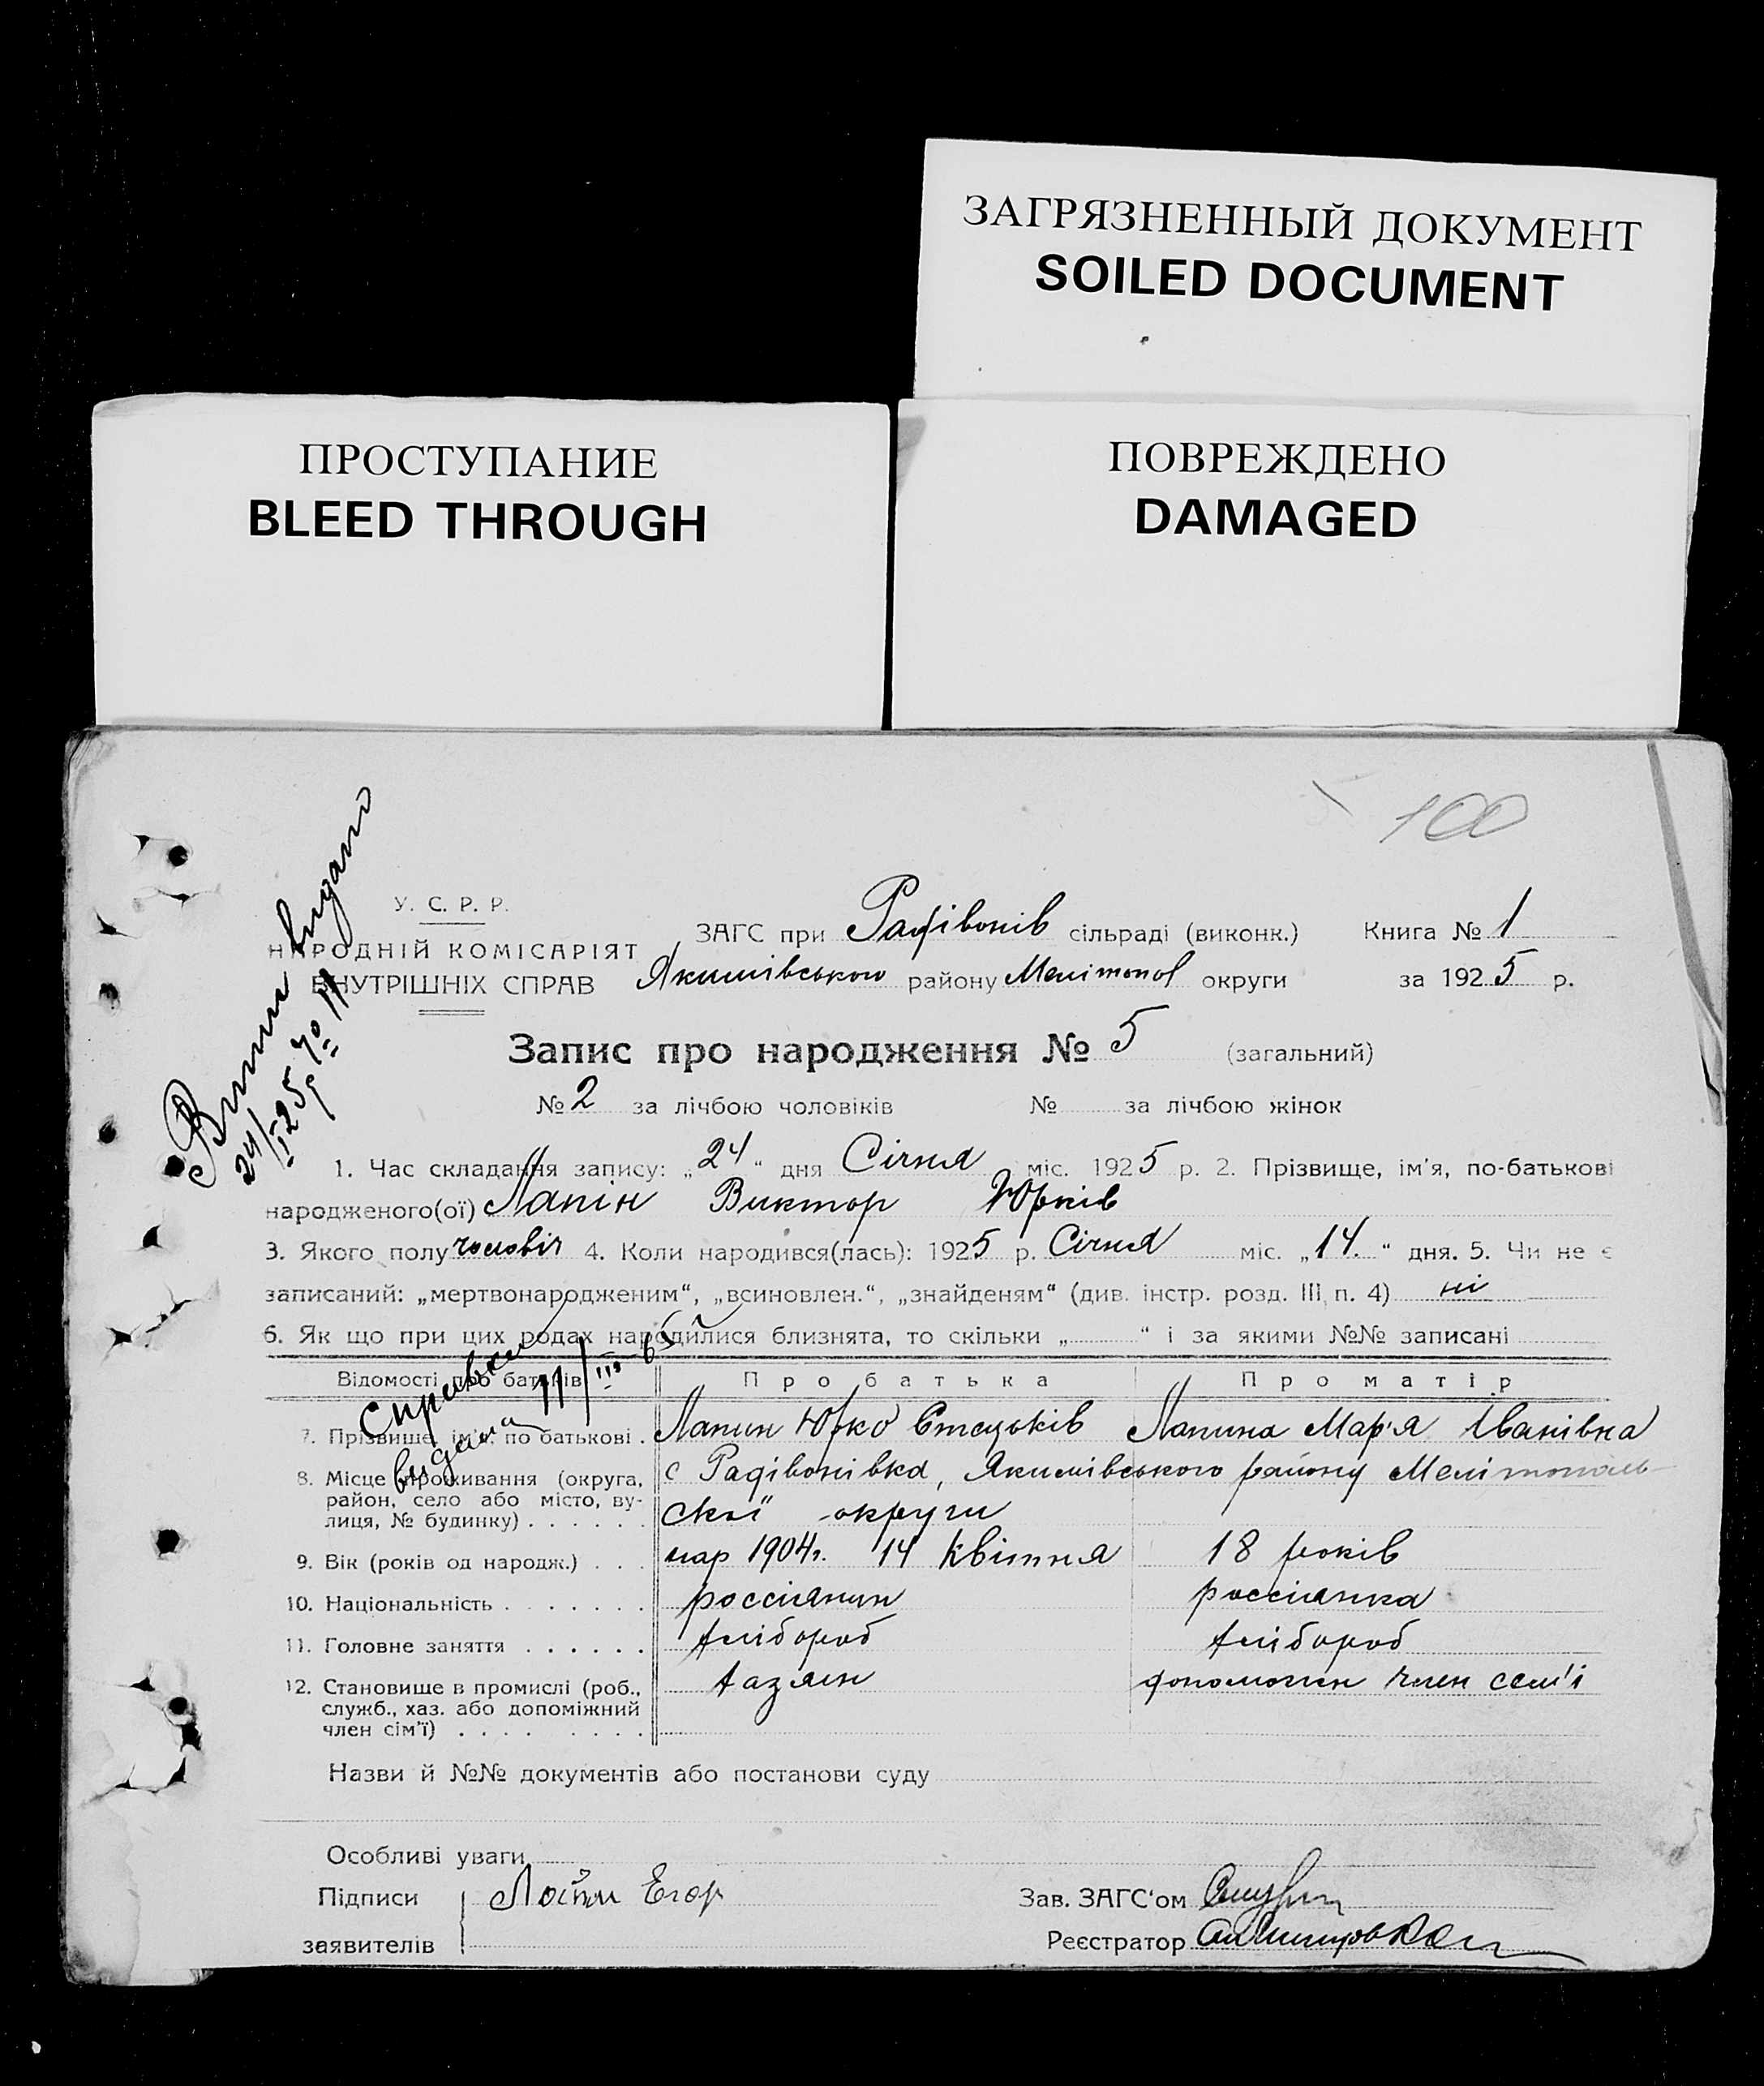 ЗАГРЯЗНЕННЫЙ ДОКУМЕНТ
SOILED DOCUMENT
ПРОСТУПАНИЕ
BLEED THROUGH
ПОВРЕЖДЕНО
DAMAGED
100
Випис видано
24/I 25 р. № 11
У. С. Р. Р.
НАРОДНІЙ КОМІСАРІЯТ
ВНУТРІШНІХ СПРАВ
ЗАГС при Радівонів сільраді (виконк.) Книга № 1
Якимівського району Мелітопол округи за 1925 р.
Запис про народження № 5 (загальний)
№ 2 за лічбою чоловіків № за лічбою жінок
1. Час складання запису: „24“ дня Січня міс. 1925 р. 2. Прізвище, ім'я, по-батькові
народженого(ої) Лапін Виктор Юрків
3. Якого полу чоловіч 4. Коли народився(лась): 1925 р. Січня міс. „14.“ дня. 5. Чи не є
записаний: „мертвонародженим“, „всиновлен.“, „знайденям“ (див. інстр. розд. III, п. 4) ні
6. Як що при цих родах народилися близнята, то скільки „ “ і за якими №№ записані
Справка видана 11/III
Відомості про батьків Про батька Про матір
7. Прізвище, ім'я, по батькові . Лапин Юрко Стецьків Лапина Мар'я Іванівна
8. Місце проживання (округа, с Радівонівка, Якимівського району Мелітополь-
район, село або місто, ву-
лиця, № будинку) . . . . . . ської округи
9. Вік (років од народж.) . . . нар 1904 г. 14 Квітня 18 років
10. Національність . . . . . . . россіянин россіянка
11. Головне заняття . . . . . . хлібороб хлібороб
12. Становище в промислі (роб., хазяін допоможен член сем'і
служб., хаз. або допоміжний
член сім'ї) . . . . . . . .
Назви й №№ документів або постанови суду
Особливі уваги
Підписи Егор Зав. ЗАГС'ом
заявителів Реєстратор